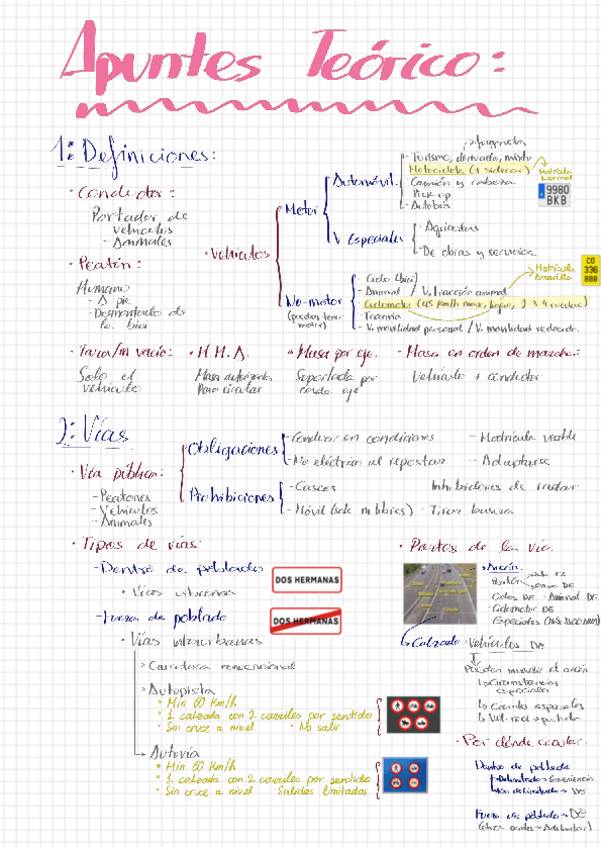 Apuntes Teórico:
1: Definiciones:
• Conductor:
Portador de
vehículos
- Animales
• Peatón:
Humano
- A pie
- Desmontado de
la bici
• Vehículos
Motor
Automóvil
- Turismo, derivado, mixto
Motocicleta (+ sidecar)
- Camión y cabeza
Pick up
- Autobús
Matrícula
normal
9980
BKB
V. Especiales
- Agrícolas
- De obras y servicios
No-motor
(pueden tener
motor)
- Ciclo (bici)
- Animal / V. tracción animal
- Ciclomotor (45 km/h max, 2-3-4 ruedas)
- Tranvía
- V. movilidad personal / V. movilidad reducida.
Matrícula
amarilla
CO
336
BBB
• Tara/m vacío:
Solo el
vehículo
• M.M.A.
Masa autorizada
Para circular
• Masa por eje.
Soportada por
cada eje
• Masa en orden de marcha:
Vehículo + conductor
2: Vías
• Vía pública:
- Peatones
- Vehículos
- Animales
Obligaciones
- Conducir en condiciones
- No eléctrico al repostar
- Matrícula visible
- Adaptarse
Prohibiciones
- Cascos
- Móvil (solo m. libres)
Inhibidores de radar
- Tirar basura
• Tipos de vías:
- Dentro de poblado
• Vías urbanas
DOS HERMANAS
- Fuera de poblado
DOS HERMANAS
• Vías interurbanas
> Carretera convencional
> Autopista
• Min 60 Km/h
• 1 calzada con 2 carriles por sentido
• Sin cruce a nivel • No salir
> Autovía
• Min 60 Km/h
• 1 calzada con 2 carriles por sentido
• Sin cruce a nivel Salidas limitadas
• Partes de la vía.
Arcén
Peatón
Ciclos DE - Animal DE
- Ciclomotor DE
Calzada: Vehículos
Pueden invadir el arcén
Circunstancias
especiales
Carriles especiales
• Por dónde circular.
Dentro de poblado
Fuera de poblado → DE